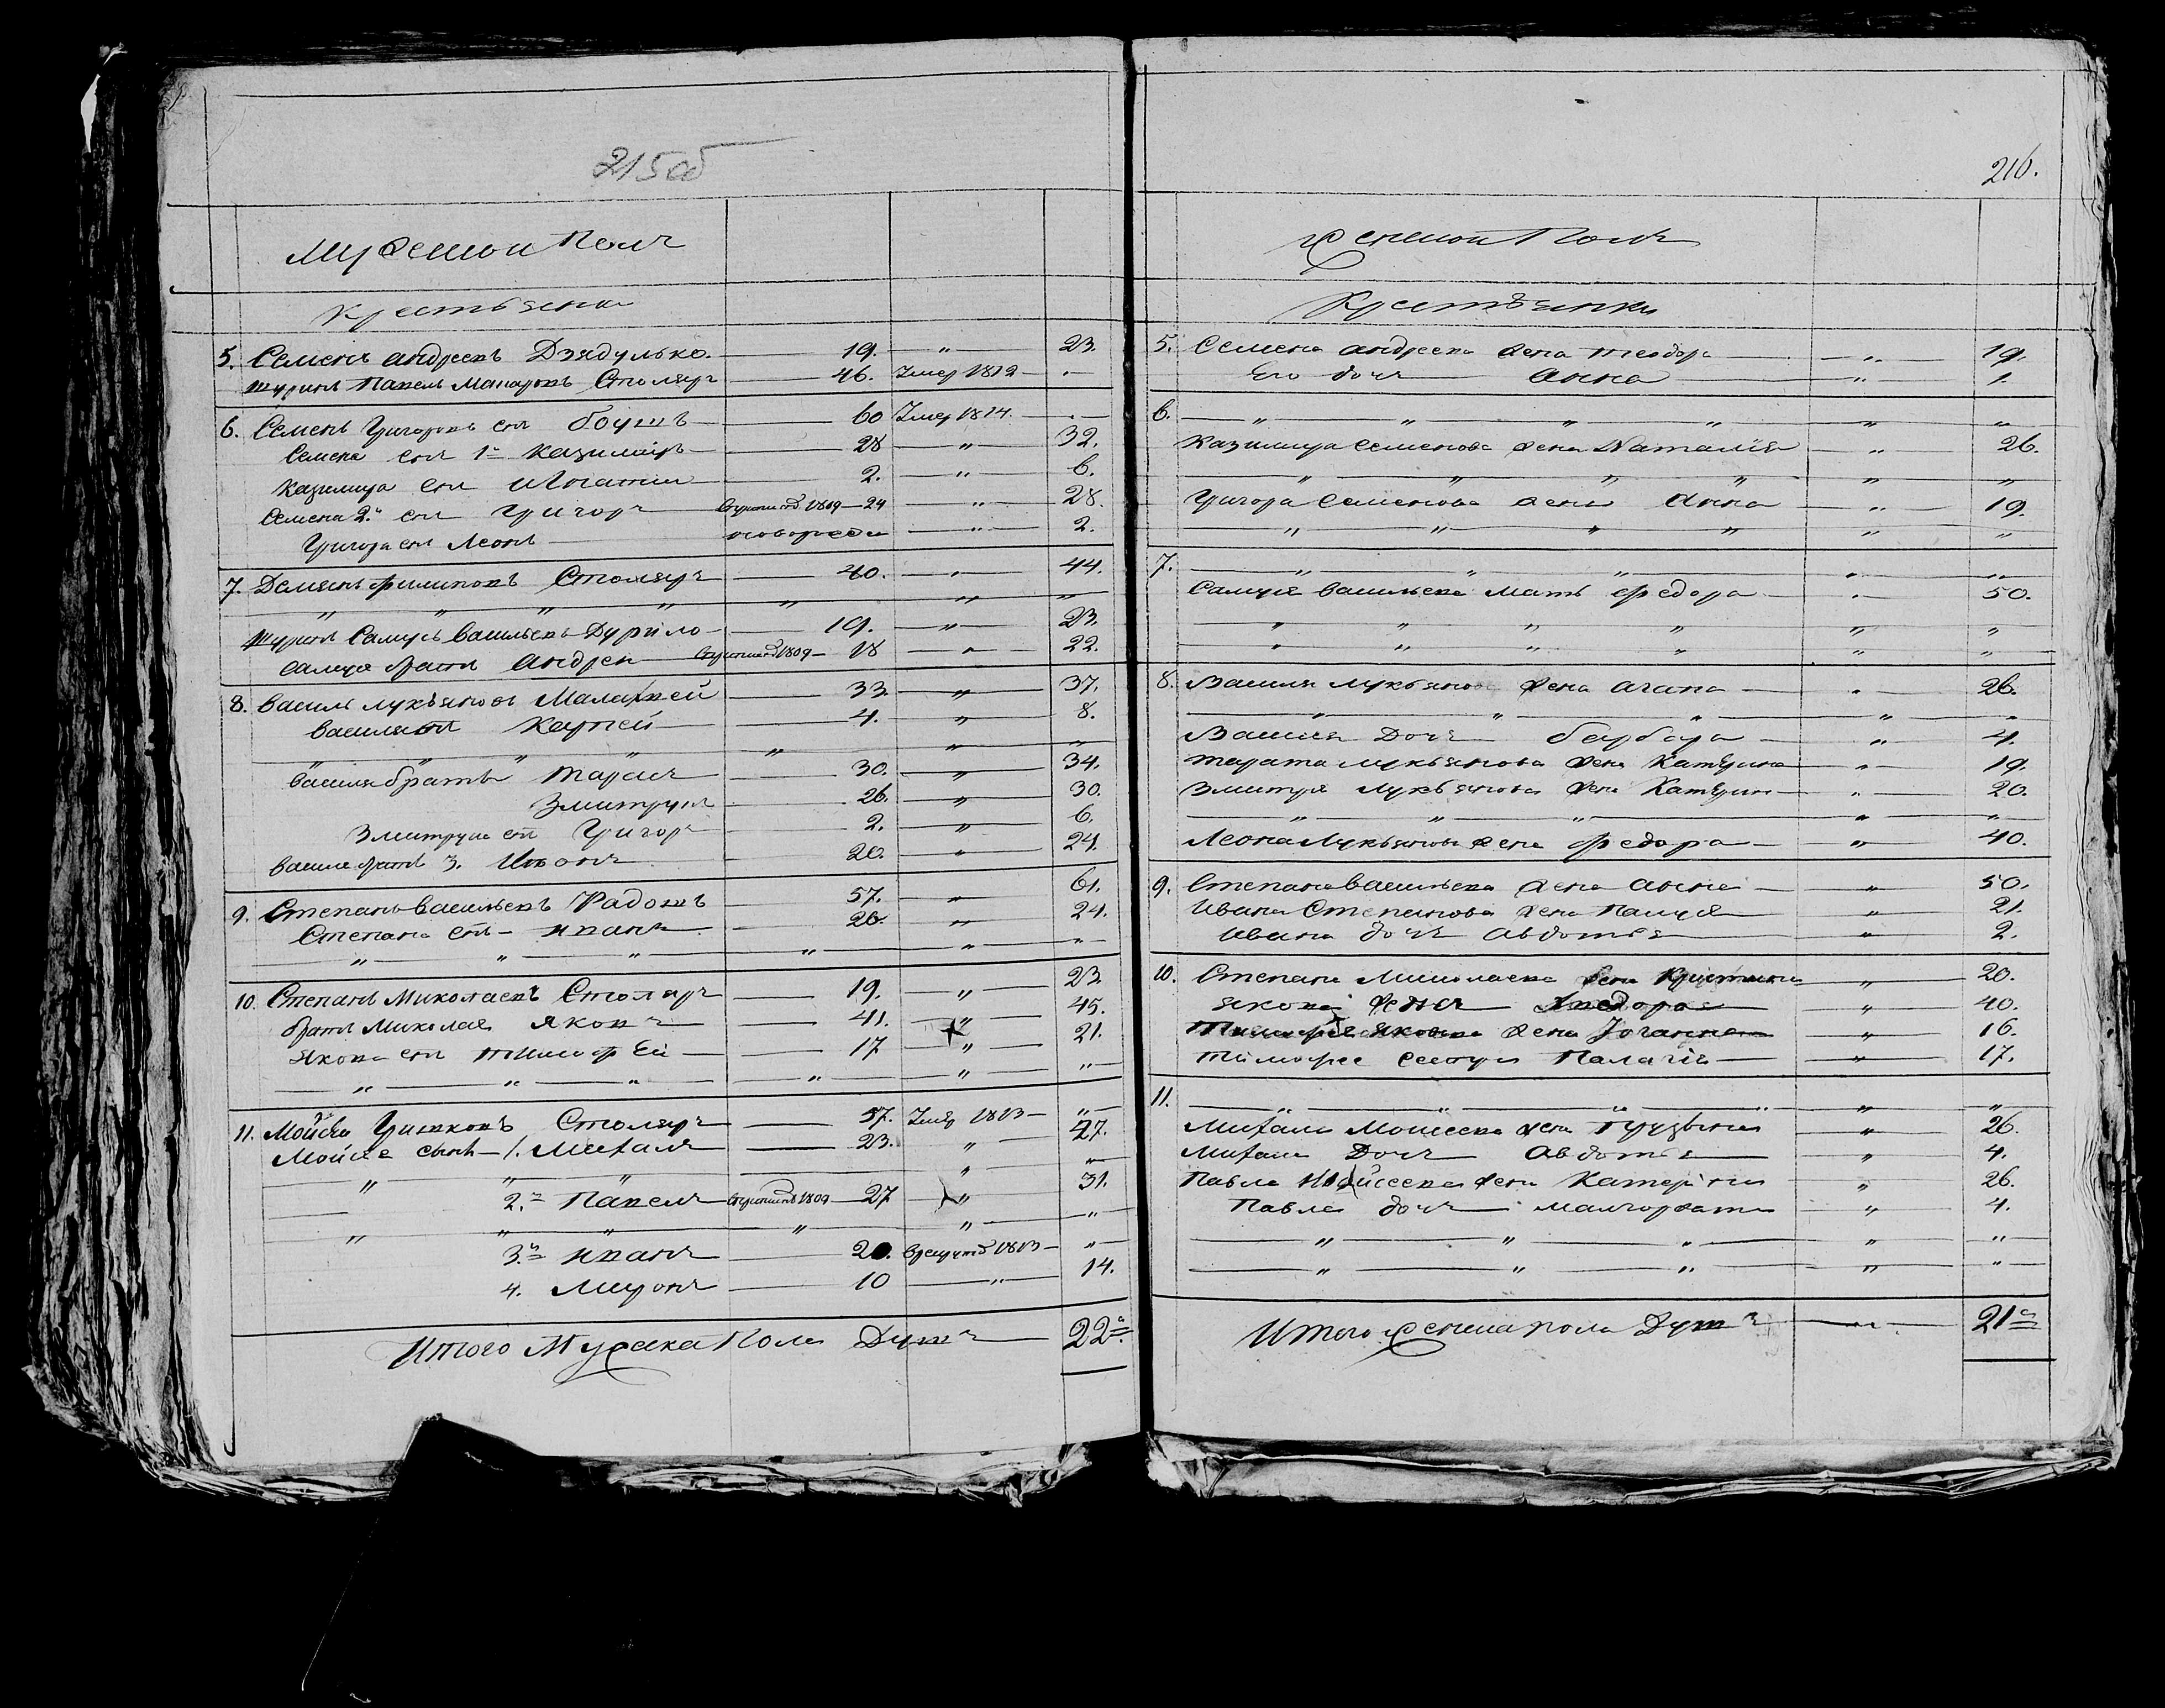 215 об
Мужеский Полъ
Крестьяне
5. Семенъ Андреевъ Дзядулько — 19. — " — 23.
Шуринъ Павелъ Макаровъ Столяръ — 46. Умер 1812 — " —
6. Семенъ Григоровъ снъ — 60 Умер 1814. — " —
Семена снъ 1й Казимиръ — 28 — " — 32.
Казимира снъ Игнатий — 2. — " — 6.
Семена 2й снъ Григоръ 1809 — 24 — " — 28.
Григора снъ Леонъ — новорожден — " — 2.
7. Демянъ Филиповъ Столяръ — 40. — " — 44.
" " " " " " "
Шуринъ Самусь Васильевъ Дурило — 19. — " — 23.
Самуся братъ Андрей 1809 — 18 — " — 22.
8. Василь Лукьяновъ Малахвей — 33. — " — 37.
Василя снъ Карпей — 4. — " — 8.
" " " " " " "
Василя братья Тарасъ — 30. — " — 34.
Змитрукъ — 26. — " — 30.
Змитрука снъ Григоръ — 2. — " — 6.
Василя братъ 3. — 20. — " — 24.
9. Степанъ Васильевъ — 57. — " — 61.
Степана снъ — Иванъ — 20. — " — 24.
" " " " " "
10. Степанъ Миколаевъ Столяръ — 19. — " — 23.
братъ Миколая Яковъ — 41. — " — 45.
Якова снъ Тимофей — 17 — " — 21.
" " " " " "
11. Мойсей Столяръ — 57. Умер 1813 — "
Мойсея сынъ — 1. Михалъ — 23. " — 27.
" " " " "
2й Павелъ 1809 — 27 " — 31.
" " " " " "
3й Иванъ — 20. 1813 — "
4. Миронъ — 10 — " — 14.
Итого Мужска Пола Душъ — 22ъ
216.
Женской Полъ
Крестьянки
5. Семена Андреева жена Теодора — " — 19.
Его дочъ Анна — " — 1.
6. " " " " " "
Казимира Семенова жена Наталiя — " — 26.
" " " " " "
Григора Семенова жена Анна — " — 19.
" " " " " "
7. " " " " "
Самуся Васильева мать Федора — " — 50.
" " " " " "
" " " " " "
8. Василя Лукьянова жена Агапа — " — 26.
" " " " "
Василя Дочъ Барбара — " — 4.
Тараса Лукьянова жена Катерина — " — 19.
Змитра Лукьянова жена Катерина — " — 20.
" " " " "
Леона Лукьянова жена Федора — " — 40.
9. Степана Васильева жена Анна — " — 50.
Ивана Степанова жена — " — 21.
Ивана дочъ Авдотья — " — 2.
10. Степана Миколаева жена Кристина — " — 20.
Якова жена — " — 40.
Тимофея Яковева жена Іоганна — " — 16.
Тимофея сестра Палагiя — " — 17.
11. " " " " " "
Михала Моисеева жена — " — 26.
Михала Дочъ Авдотья — " — 4.
Павла Мойсеева жена Катерiна — " — 26.
Павла дочъ — " — 4.
" " " " "
" " " " "
Итого Женска пола Душъ — " — 21а